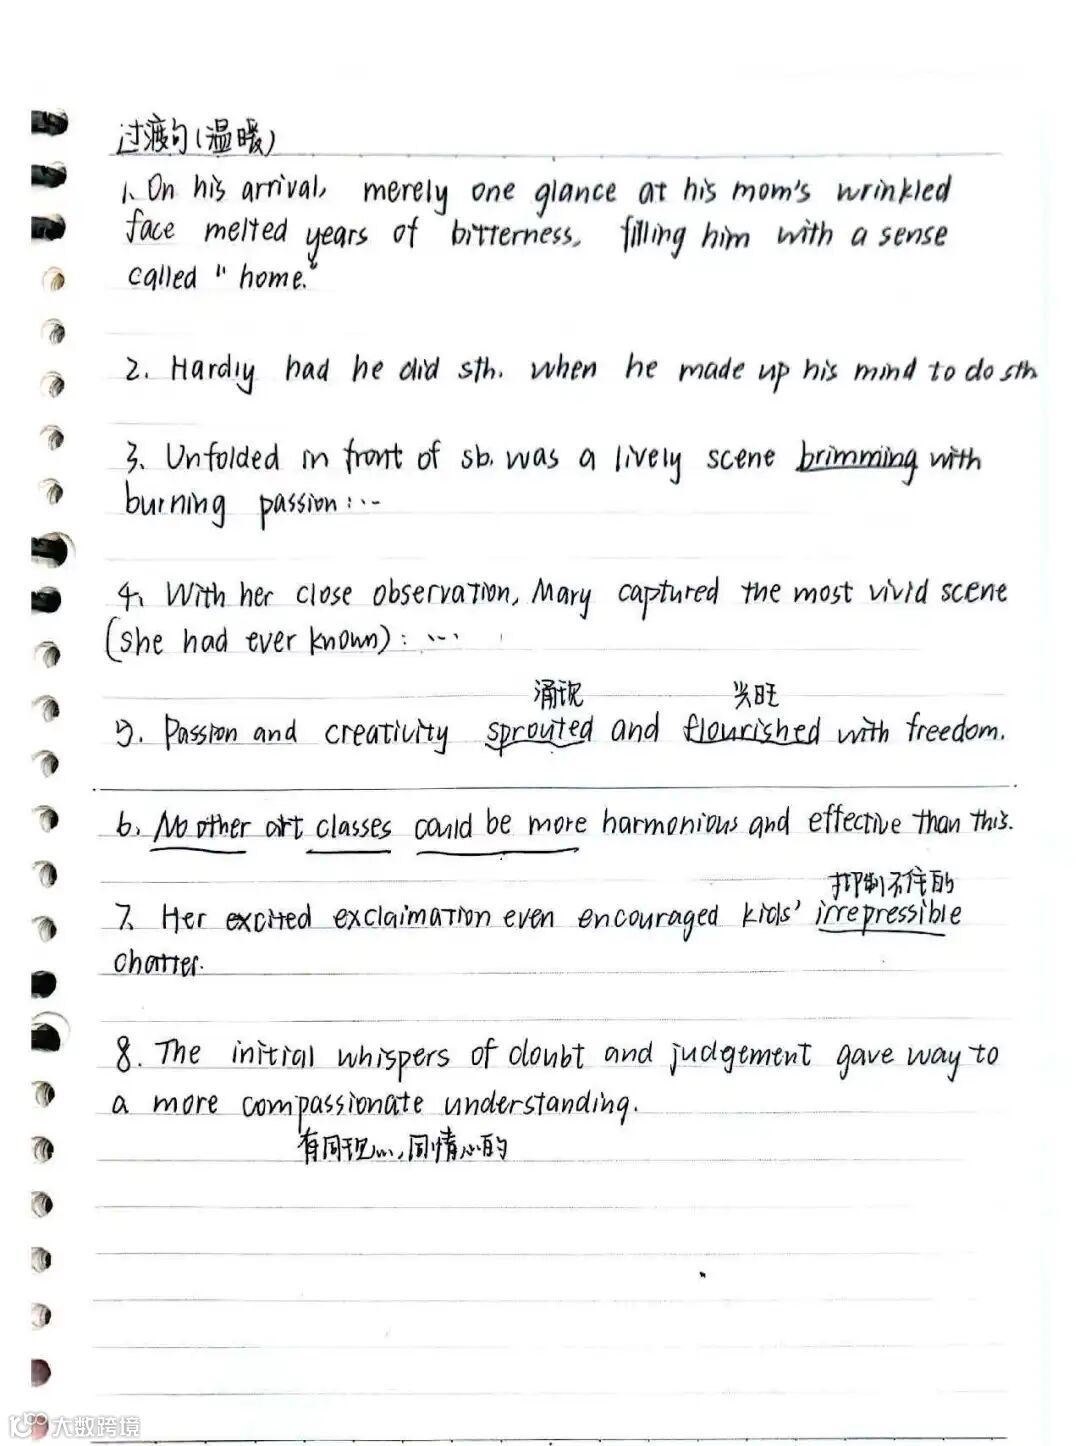 过渡句(温暖)
1、On his arrival, merely one glance at his mom's wrinkled
face melted years of bitterness, filling him with a sense
called "home."
2. Hardly had he did sth. when he made up his mind to do sth
3、Unfolded in front of sb. was a lively scene brimming with
burning passion:...
4、With her close observation, Mary captured the most vivid scene
(she had ever known): ....
涌现 兴旺
5. Passion and creativity sprouted and flourished with freedom.
6、No other art classes could be more harmonious and effective than this.
抑制不住的
7. Her excited exclaimation even encouraged kids' irrepressible
chatter.
8. The initial whispers of doubt and judgement gave way to
a more compassionate understanding.
有同理心,同情心的
大数跨境